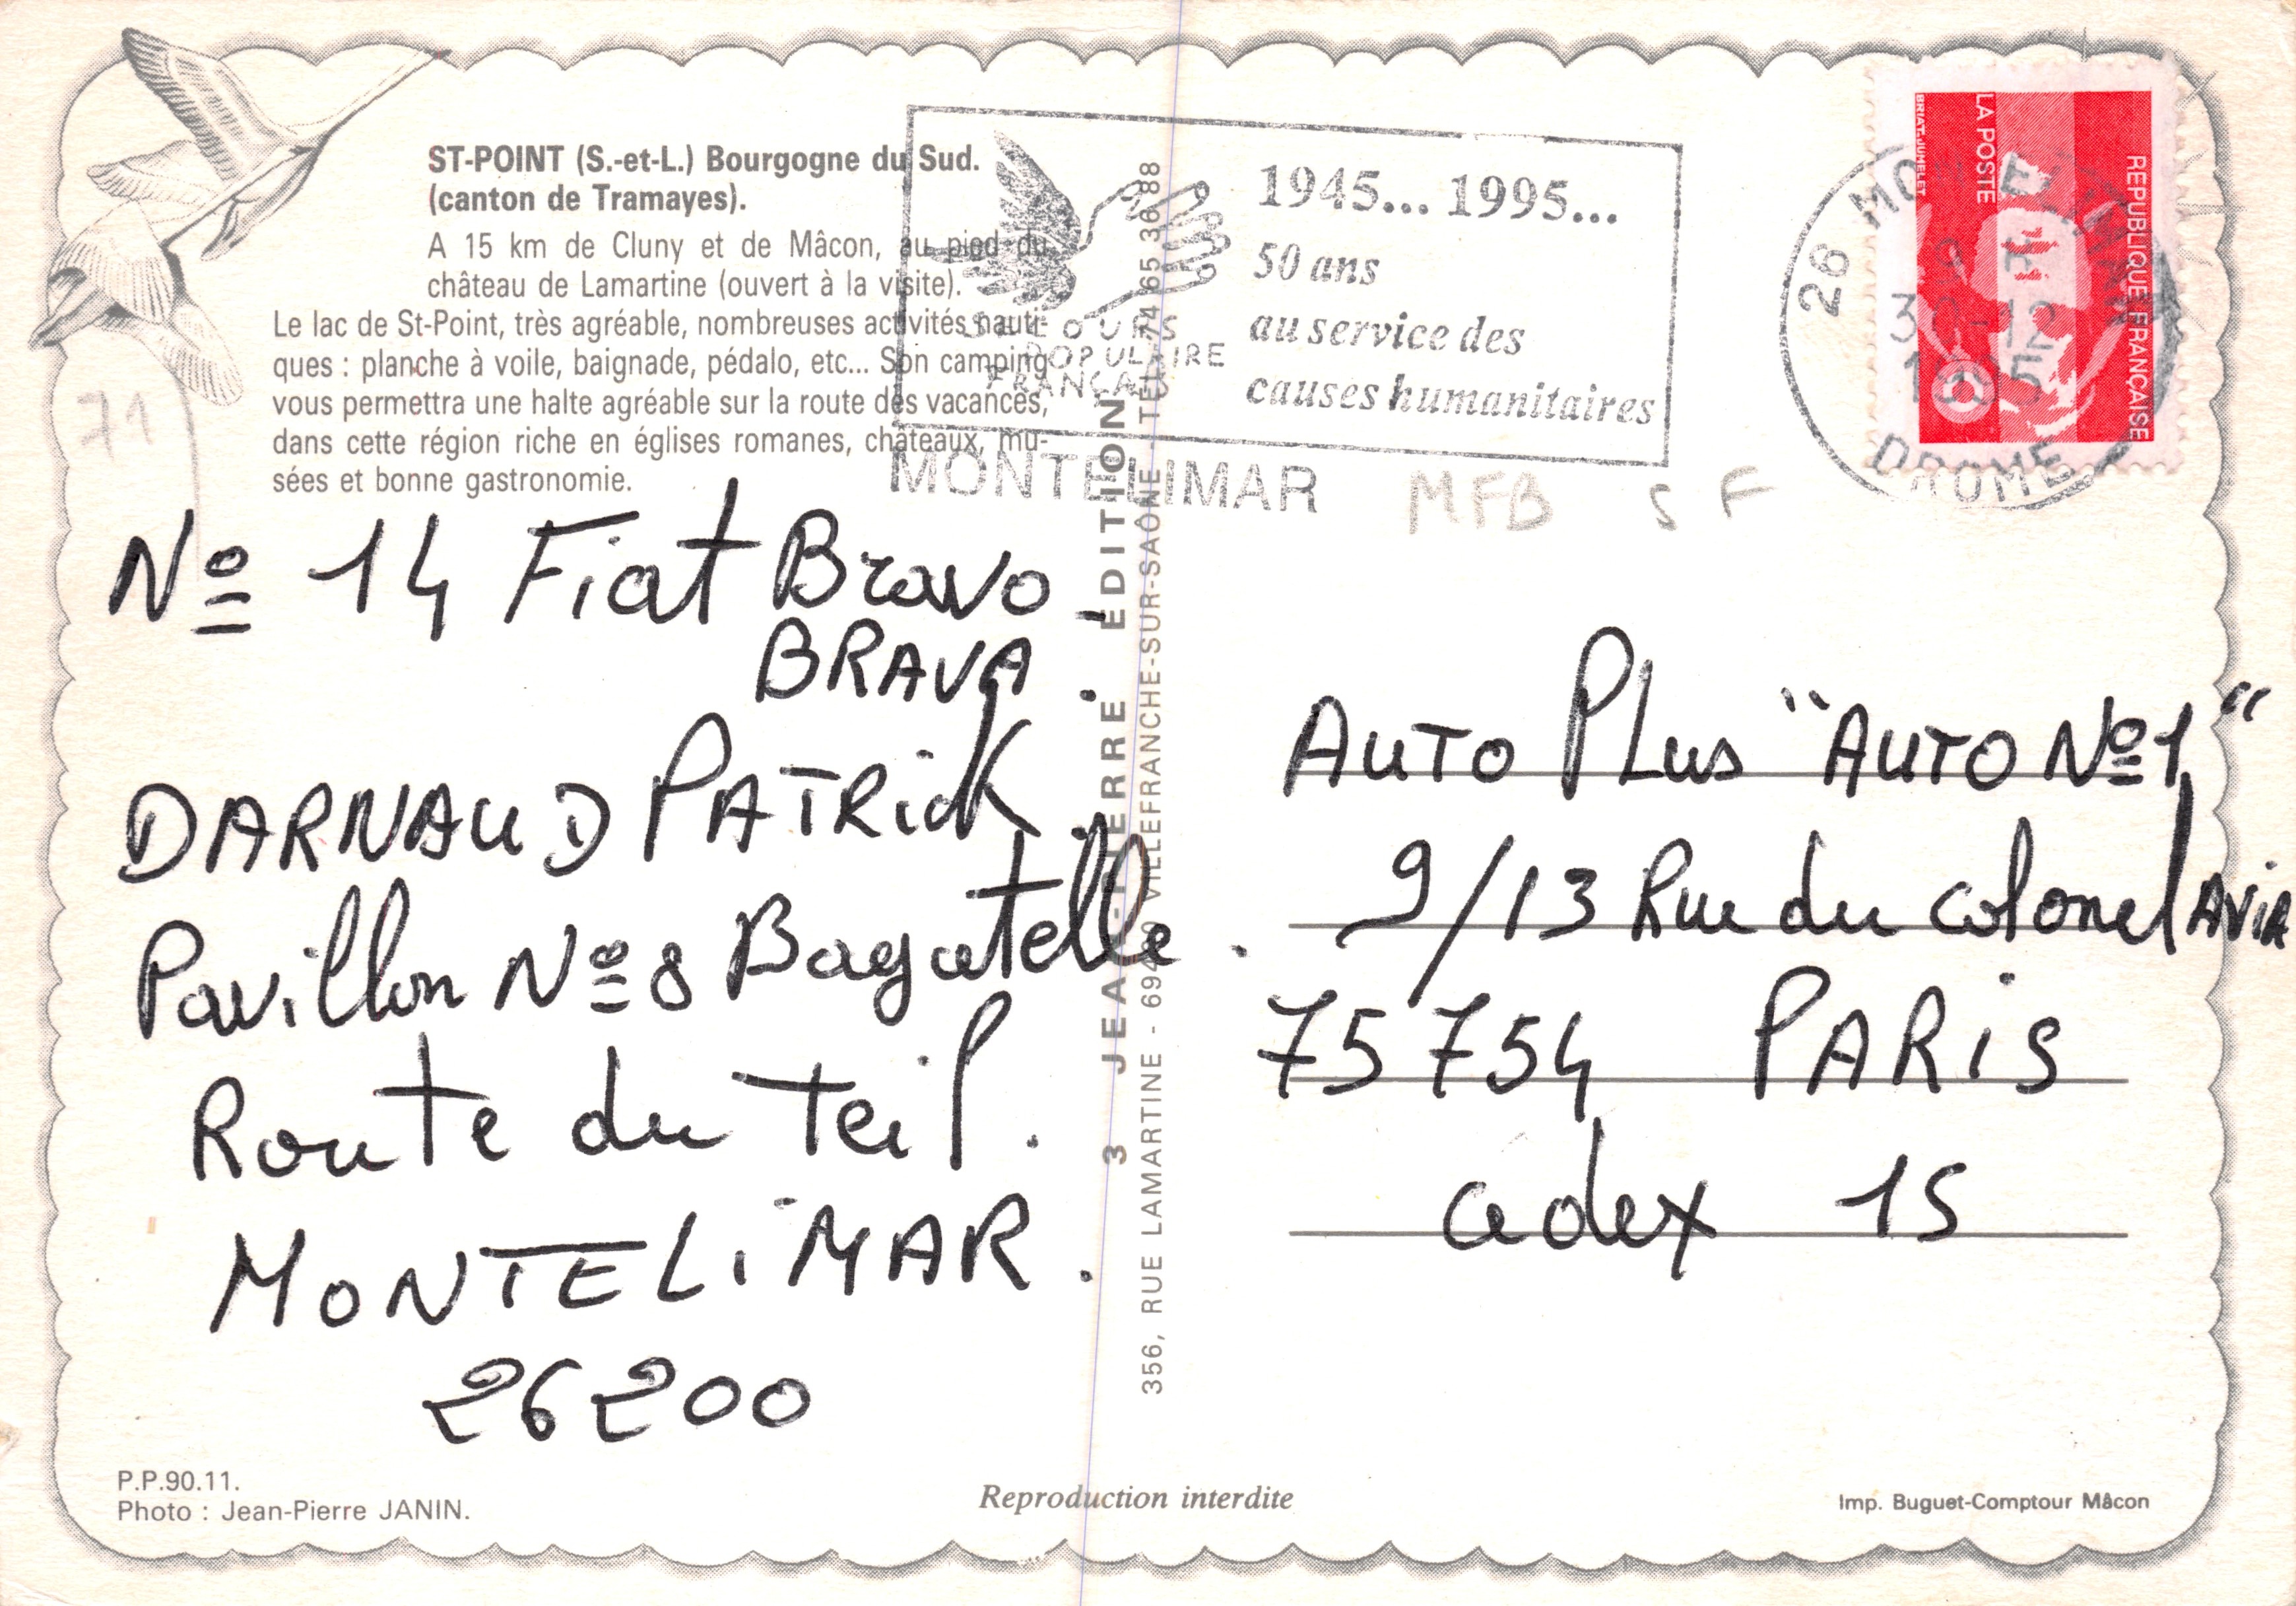 ST-POINT (S.-et-L.) Bourgogne du Sud.
(canton de Tramayes).
A 15 km de Cluny et de Mâcon, au pied du
château de Lamartine (ouvert à la visite).
Le lac de St-Point, très agréable, nombreuses activités nauti-
ques : planche à voile, baignade, pédalo, etc... Son camping
vous permettra une halte agréable sur la route des vacances,
dans cette région riche en églises romanes, châteaux, mu-
sées et bonne gastronomie.
71
1945... 1995...
50 ans
au service des
causes humanitaires
SECOURS
POPULAIRE
FRANÇAIS
MONTELIMAR
26 MONTELIMAR
9 H
30-12
1995
DROME
REPUBLIQUE FRANÇAISE
LA POSTE
BRIAT-JUMELET
MFB S F
Nº 14 Fiat Bravo.
BRAVA.
DARNAUD PATRick.
Pavillon Nº 8 Bagatelle.
Route du Teil.
MONTELiMAR.
26200
JEAN-PIERRE EDITION
356, RUE LAMARTINE - 69400 VILLEFRANCHE-SUR-SAÔNE - TÉL. 74 65 36 88
3
AUTO PLus "AUTO Nº1"
9/13 Rue du colonel AVIA
75754 PARiS
cedex 15
P.P.90.11.
Photo : Jean-Pierre JANIN.
Reproduction interdite
Imp. Buguet-Comptour Mâcon